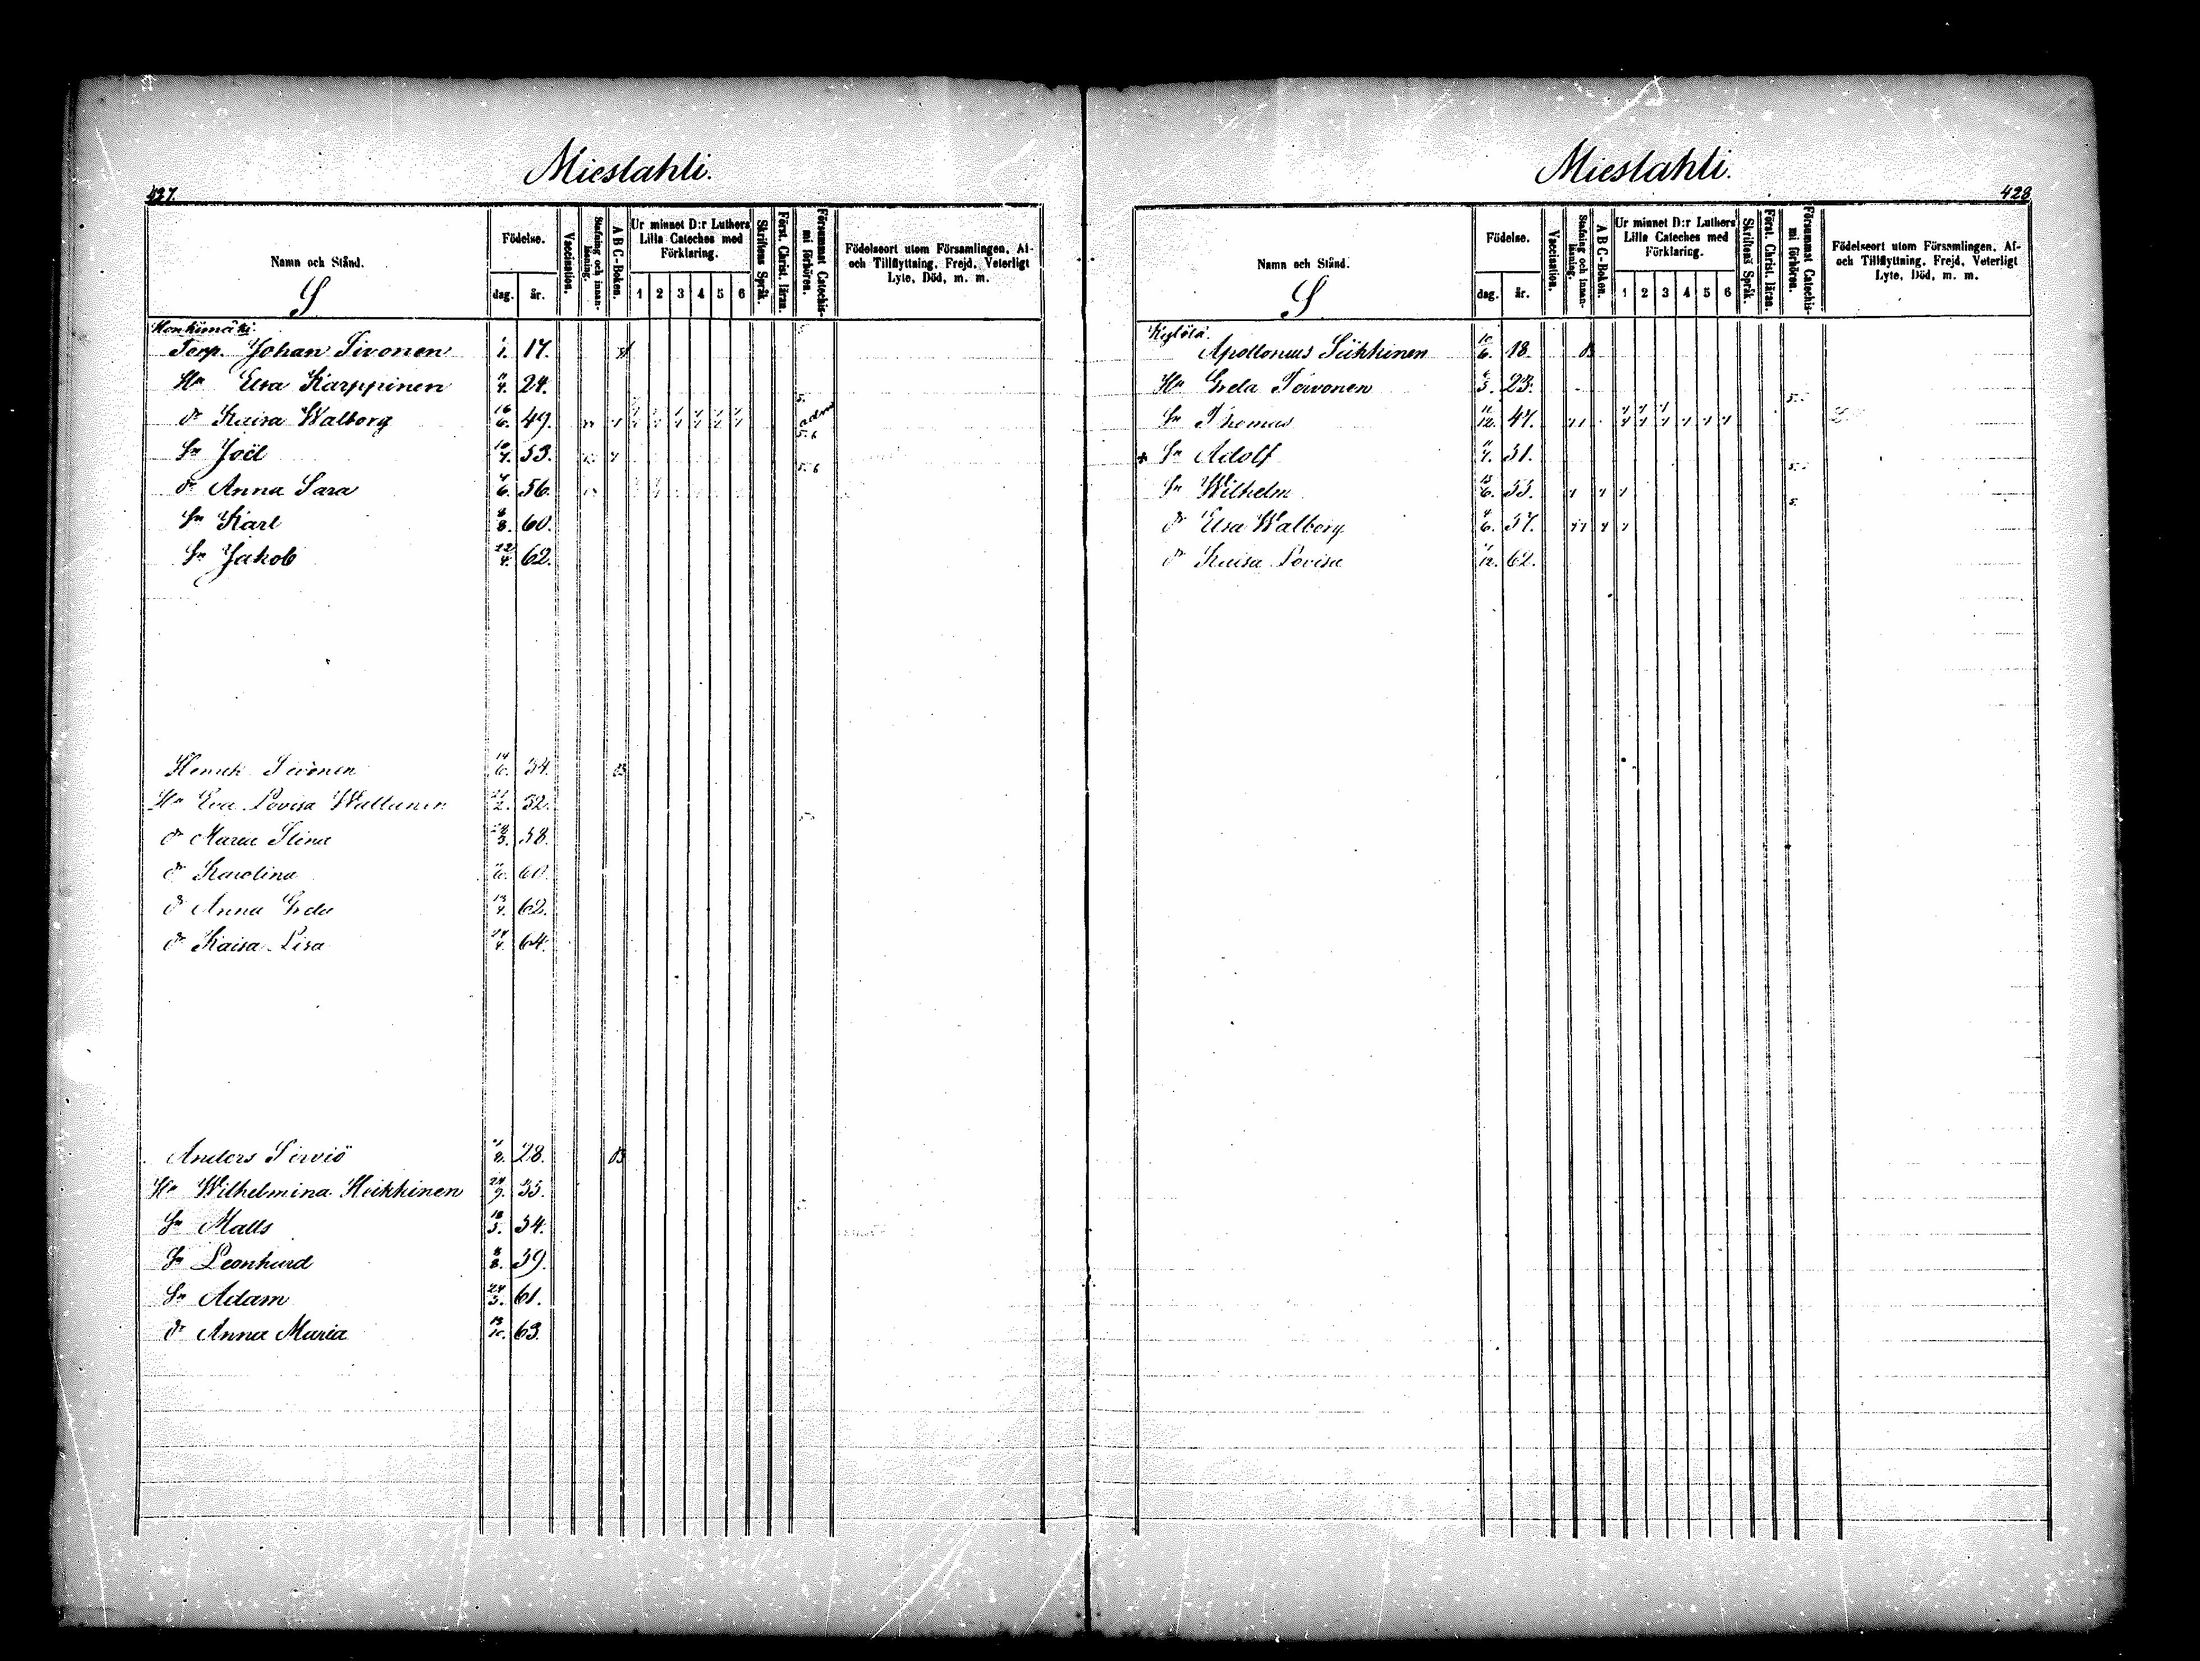 Mieslahti.
427.
Namn och Stånd.
S
Födelse.
dag.
år.
Vaccination.
Stafning och innan-läsning.
A B C-Boken.
Ur minnet D:r Luthers
Lilla Cateches med
Förklaring.
1 2 3 4 5 6
Skriftens Språk.
Först. Christ. läran.
Försummat Catechis-mi förhören.
Födelseort utom Församlingen, Af-
och Tillflyttning, Frejd, Veterligt
Lyte, Död, m. m.
Honkimäki.
Torp. Johan Sivonen 1. 17.
Hu Elsa Karppinen 4. 24.
dr Kaisa Walborg 16/6. 49.
Sn Joël 10/4. 53. 5. 6
dr Anna Sara 4/6. 56. 5. 6
Sn Karl 8/8. 60.
Sn Jakob 22/4. 62.
Henrik Sivonen 14/6. 34.
Hu Eva Lovisa Waltanen 2. 32.
dr Maria Stina 3. 58.
dr Karolina 60.
dr Anna Greta 13/4. 62.
dr Kaisa Lisa 24/4. 64.
Anders Sirviö 8. 28.
Hu Wilhelmina Heikkinen 24/9. 33.
Sn Matts 18/3. 54.
Sn Leonhard 8/8. 59.
Sn Adam 24/3. 61.
dr Anna Maria 13/10. 63.
Mieslahti.
428
Namn och Stånd.
S
Födelse.
dag.
år.
Vaccination.
Stafning och innan-läsning.
A B C-Boken.
Ur minnet D:r Luthers
Lilla Cateches med
Förklaring.
1 2 3 4 5 6
Skriftens Språk.
Först. Christ. läran.
Försummat Catechis-mi förhören.
Födelseort utom Församlingen, Af-
och Tillflyttning, Frejd, Veterligt
Lyte, Död, m. m.
Apollonius Sikkinen 10/6. 18.
Hu Greta Toivonen 3. 23.
Sn Thomas 11/12. 47.
Sn Adolf 4. 51.
Sn Wilhelm 15/6. 53.
dr Elsa Walborg 4/6. 57.
dr Kaisa Lovisa 12. 62.